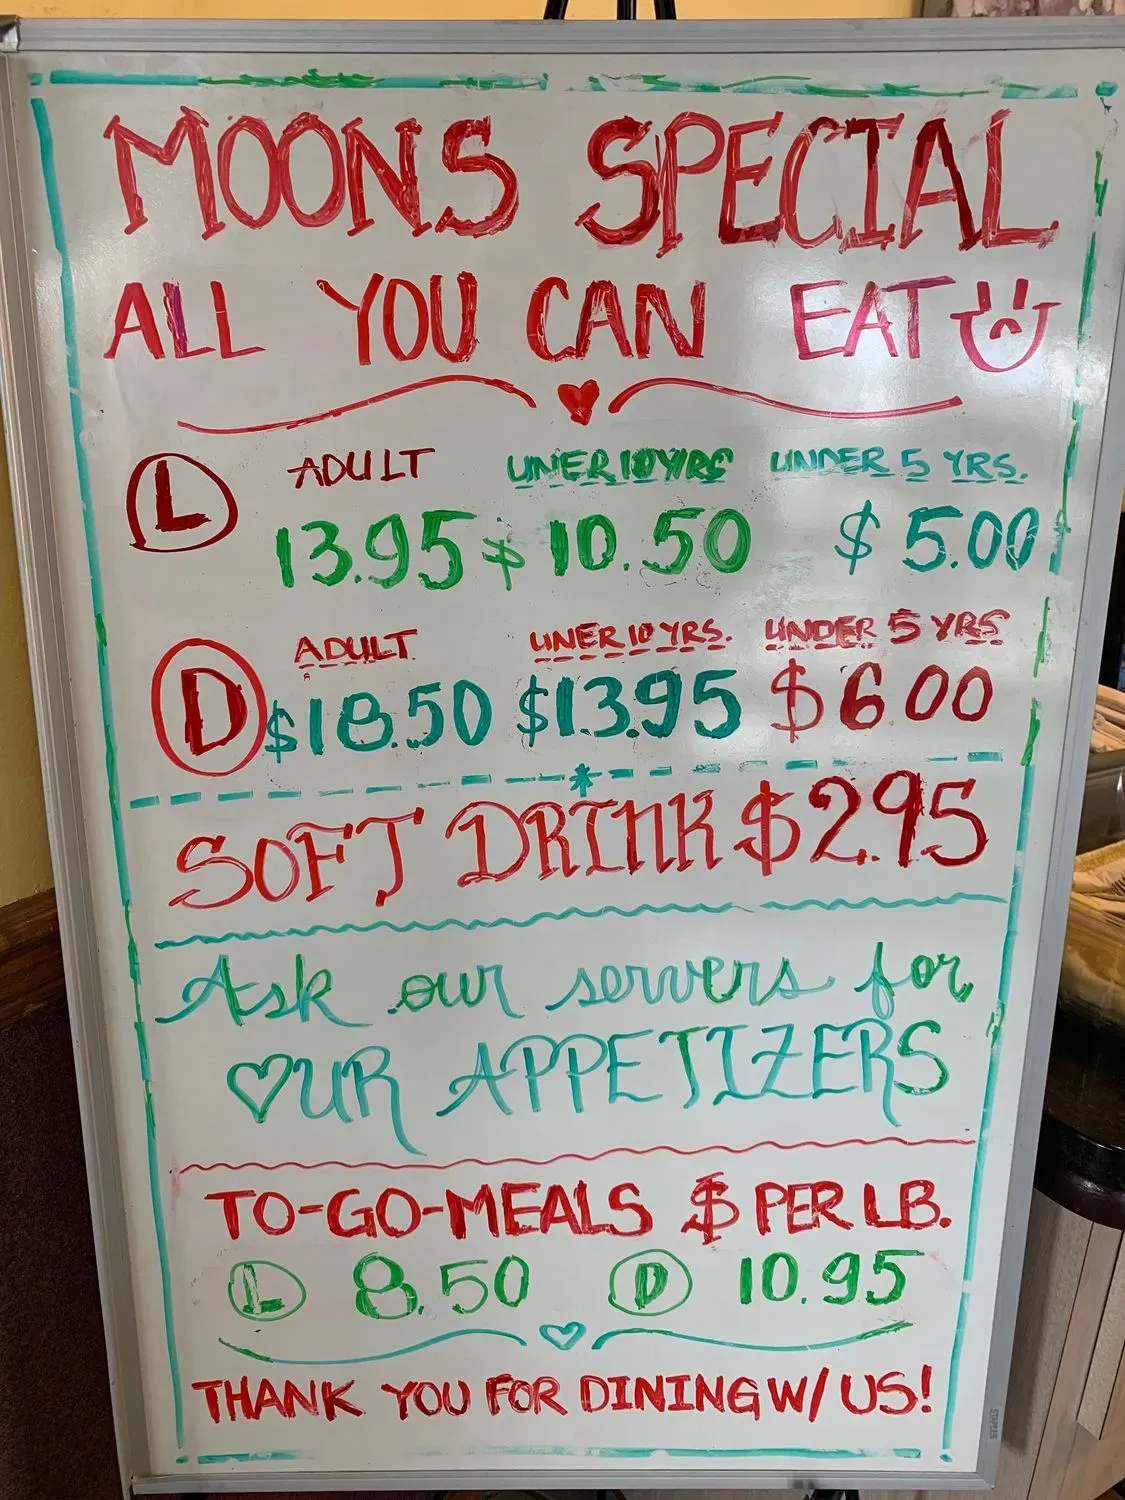 MOONS SPECIAL
ALL YOU CAN EAT
L ADULT UNER 10 YRS UNDER 5 YRS.
13.95 $10.50 $5.00
D ADULT UNER 10 YRS. UNDER 5 YRS
$18.50 $13.95 $6 00
SOFT DRINK $2.95
Ask our servers for
OUR APPETIZERS
TO-GO-MEALS $ PER LB.
L 8.50 D 10.95
THANK YOU FOR DINING W/ US!
STAPLES